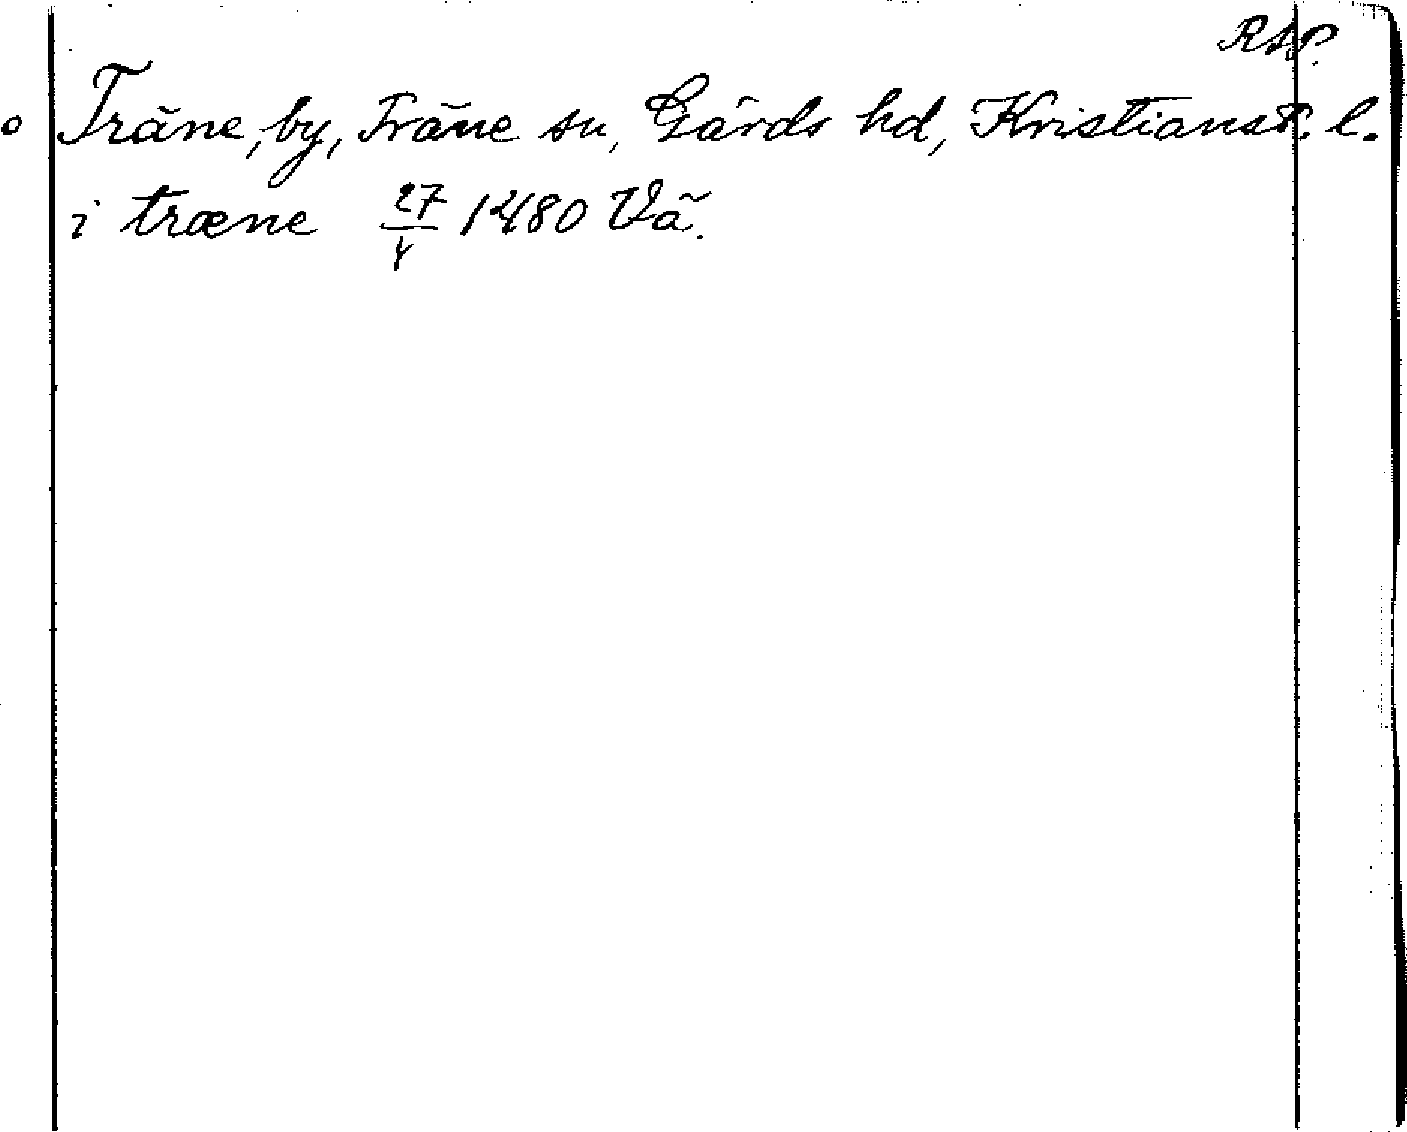 RAP.
o Träne, by, Träne sn, Gärds hd, Kristianst. l.
i træne 27/4 1480 Vä.